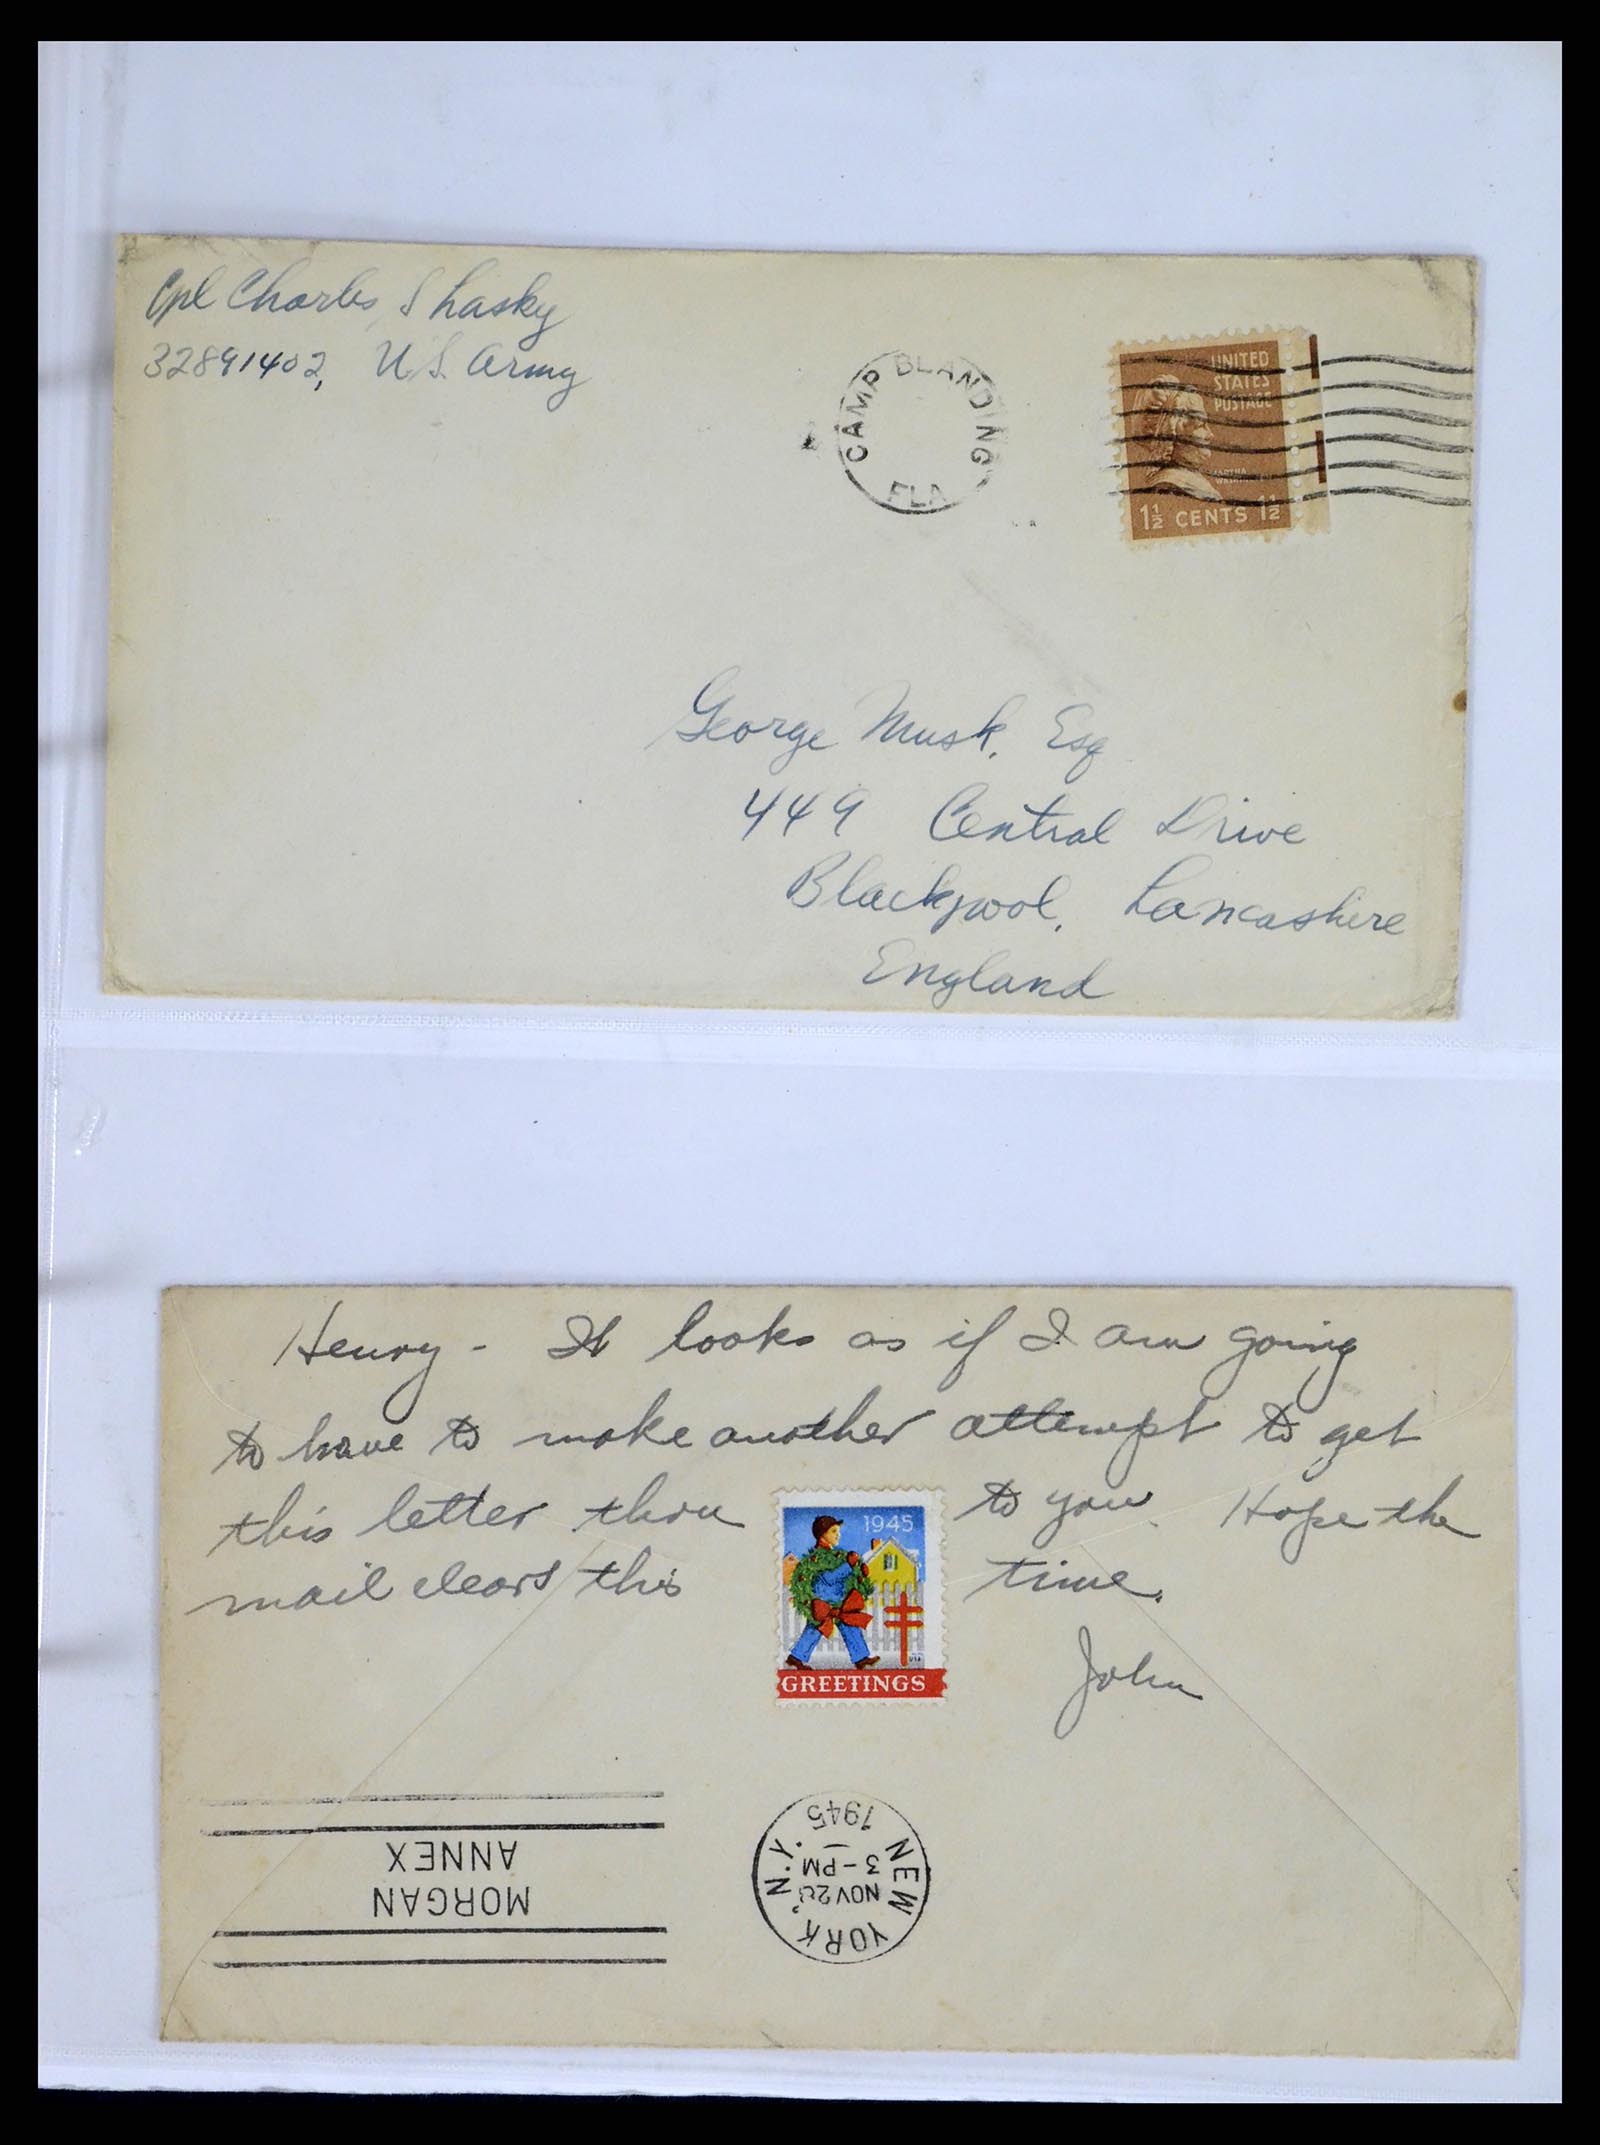 Cpl Charles Shasky
32891402, U.S. Army
CAMP BLANDING
FLA
UNITED
STATES
POSTAGE
MARTHA
1½ CENTS 1½
George Musk, Esq
449 Central Drive
Blackpool, Lancashire
England
Henry - It looks as if I am going
to have to make another attempt to get
this letter thru to you. Hope the
mail clears this time.
John
1945
GREETINGS
MORGAN
ANNEX
NEW YORK, N.Y.
NOV 28
3-PM
1945